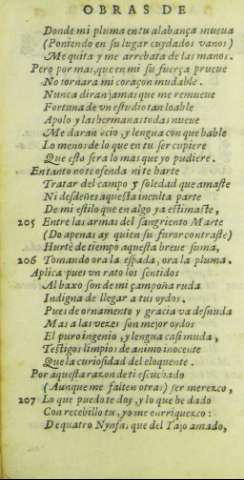 OBRAS DE
Donde mi pluma en tu alabança mueua
(Poniendo en su lugar cuydados vanos)
Me quita y me arrebata de las manos.
Pero por mas, que en mi su fuerça prueue
No tornara mi coraçon mudable.
Nunca diran jamas que me remueue
Fortuna de vn estudio tan loable
Apolo y las hermanas todas nueue
Me daran ocio, y lengua con que hable
Lo menos de lo que en tu ser cupiere
Que esta sera lo mas que yo pudiere.
En tanto no te ofenda ni te harte
Tratar del campo y soledad que amaste
Ni desdeñes aquesta inculta parte
De mi estilo que en algo ya estimaste,
205 Entre las armas del sangriento Marte
(Do apenas ay quien su furor contraste)
Hurtè de tiempo aquesta breue suma,
206 Tomando ora la espada, ora la pluma.
Aplica pues vn rato los sentidos
Al baxo son de mi çampoña ruda
Indigna de llegar a tus oydos.
Pues de ornamento y gracia va desnuda
Mas a las vezes son mejor oydos
El puro ingenio, y lengua casi muda,
Testigos limpios de animo inocente
Que la curiosidad del eloquente.
Por aquesta razon de ti escuchado
(Aunque me falten otras) ser merezco,
207 Lo que puedo te doy, y lo que he dado
Con recebillo tu, yo me enrriquezco:
De quatro Nynfas, que del Tajo amado,